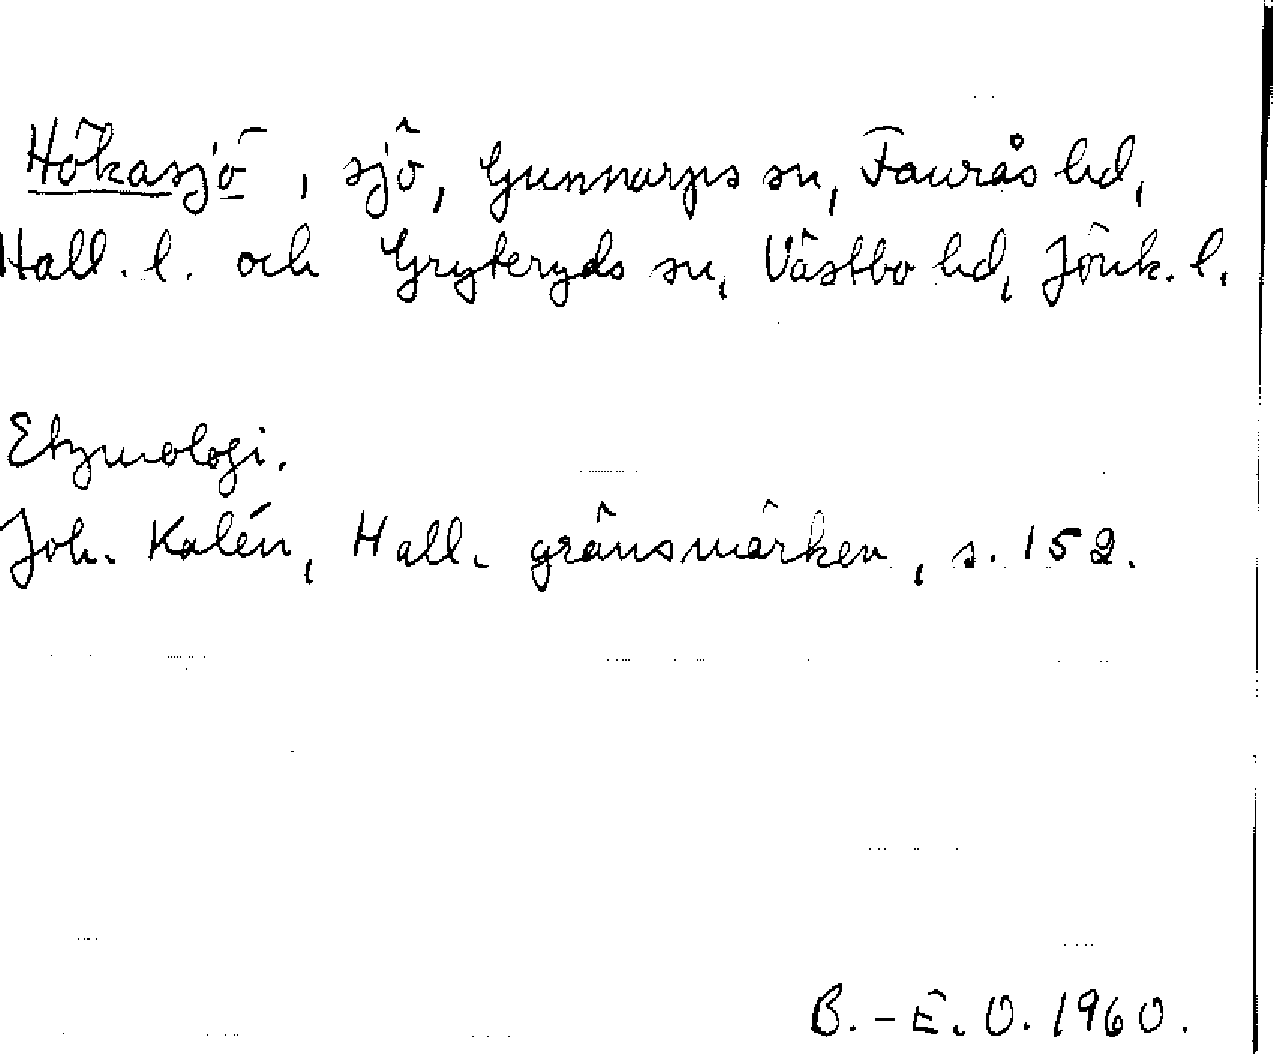 Hökasjö, sjö, Gunnarps sn, Faurås hd,
Hall. l. och Gryteryds sn, Västbo hd, Jönk. l.
Etymologi.
Joh. Kalén, Hall. gränsmärken, s. 152.
B.-E. O. 1960.